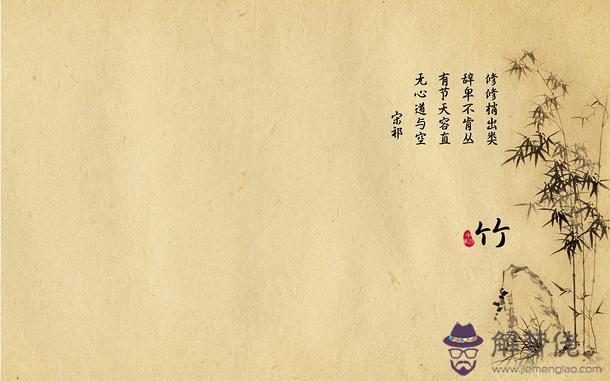 修修梢出类
辞卑不肯丛
有节天容直
无心道与空
宋祁
竹
解梦佬
www.jiemenglao.com